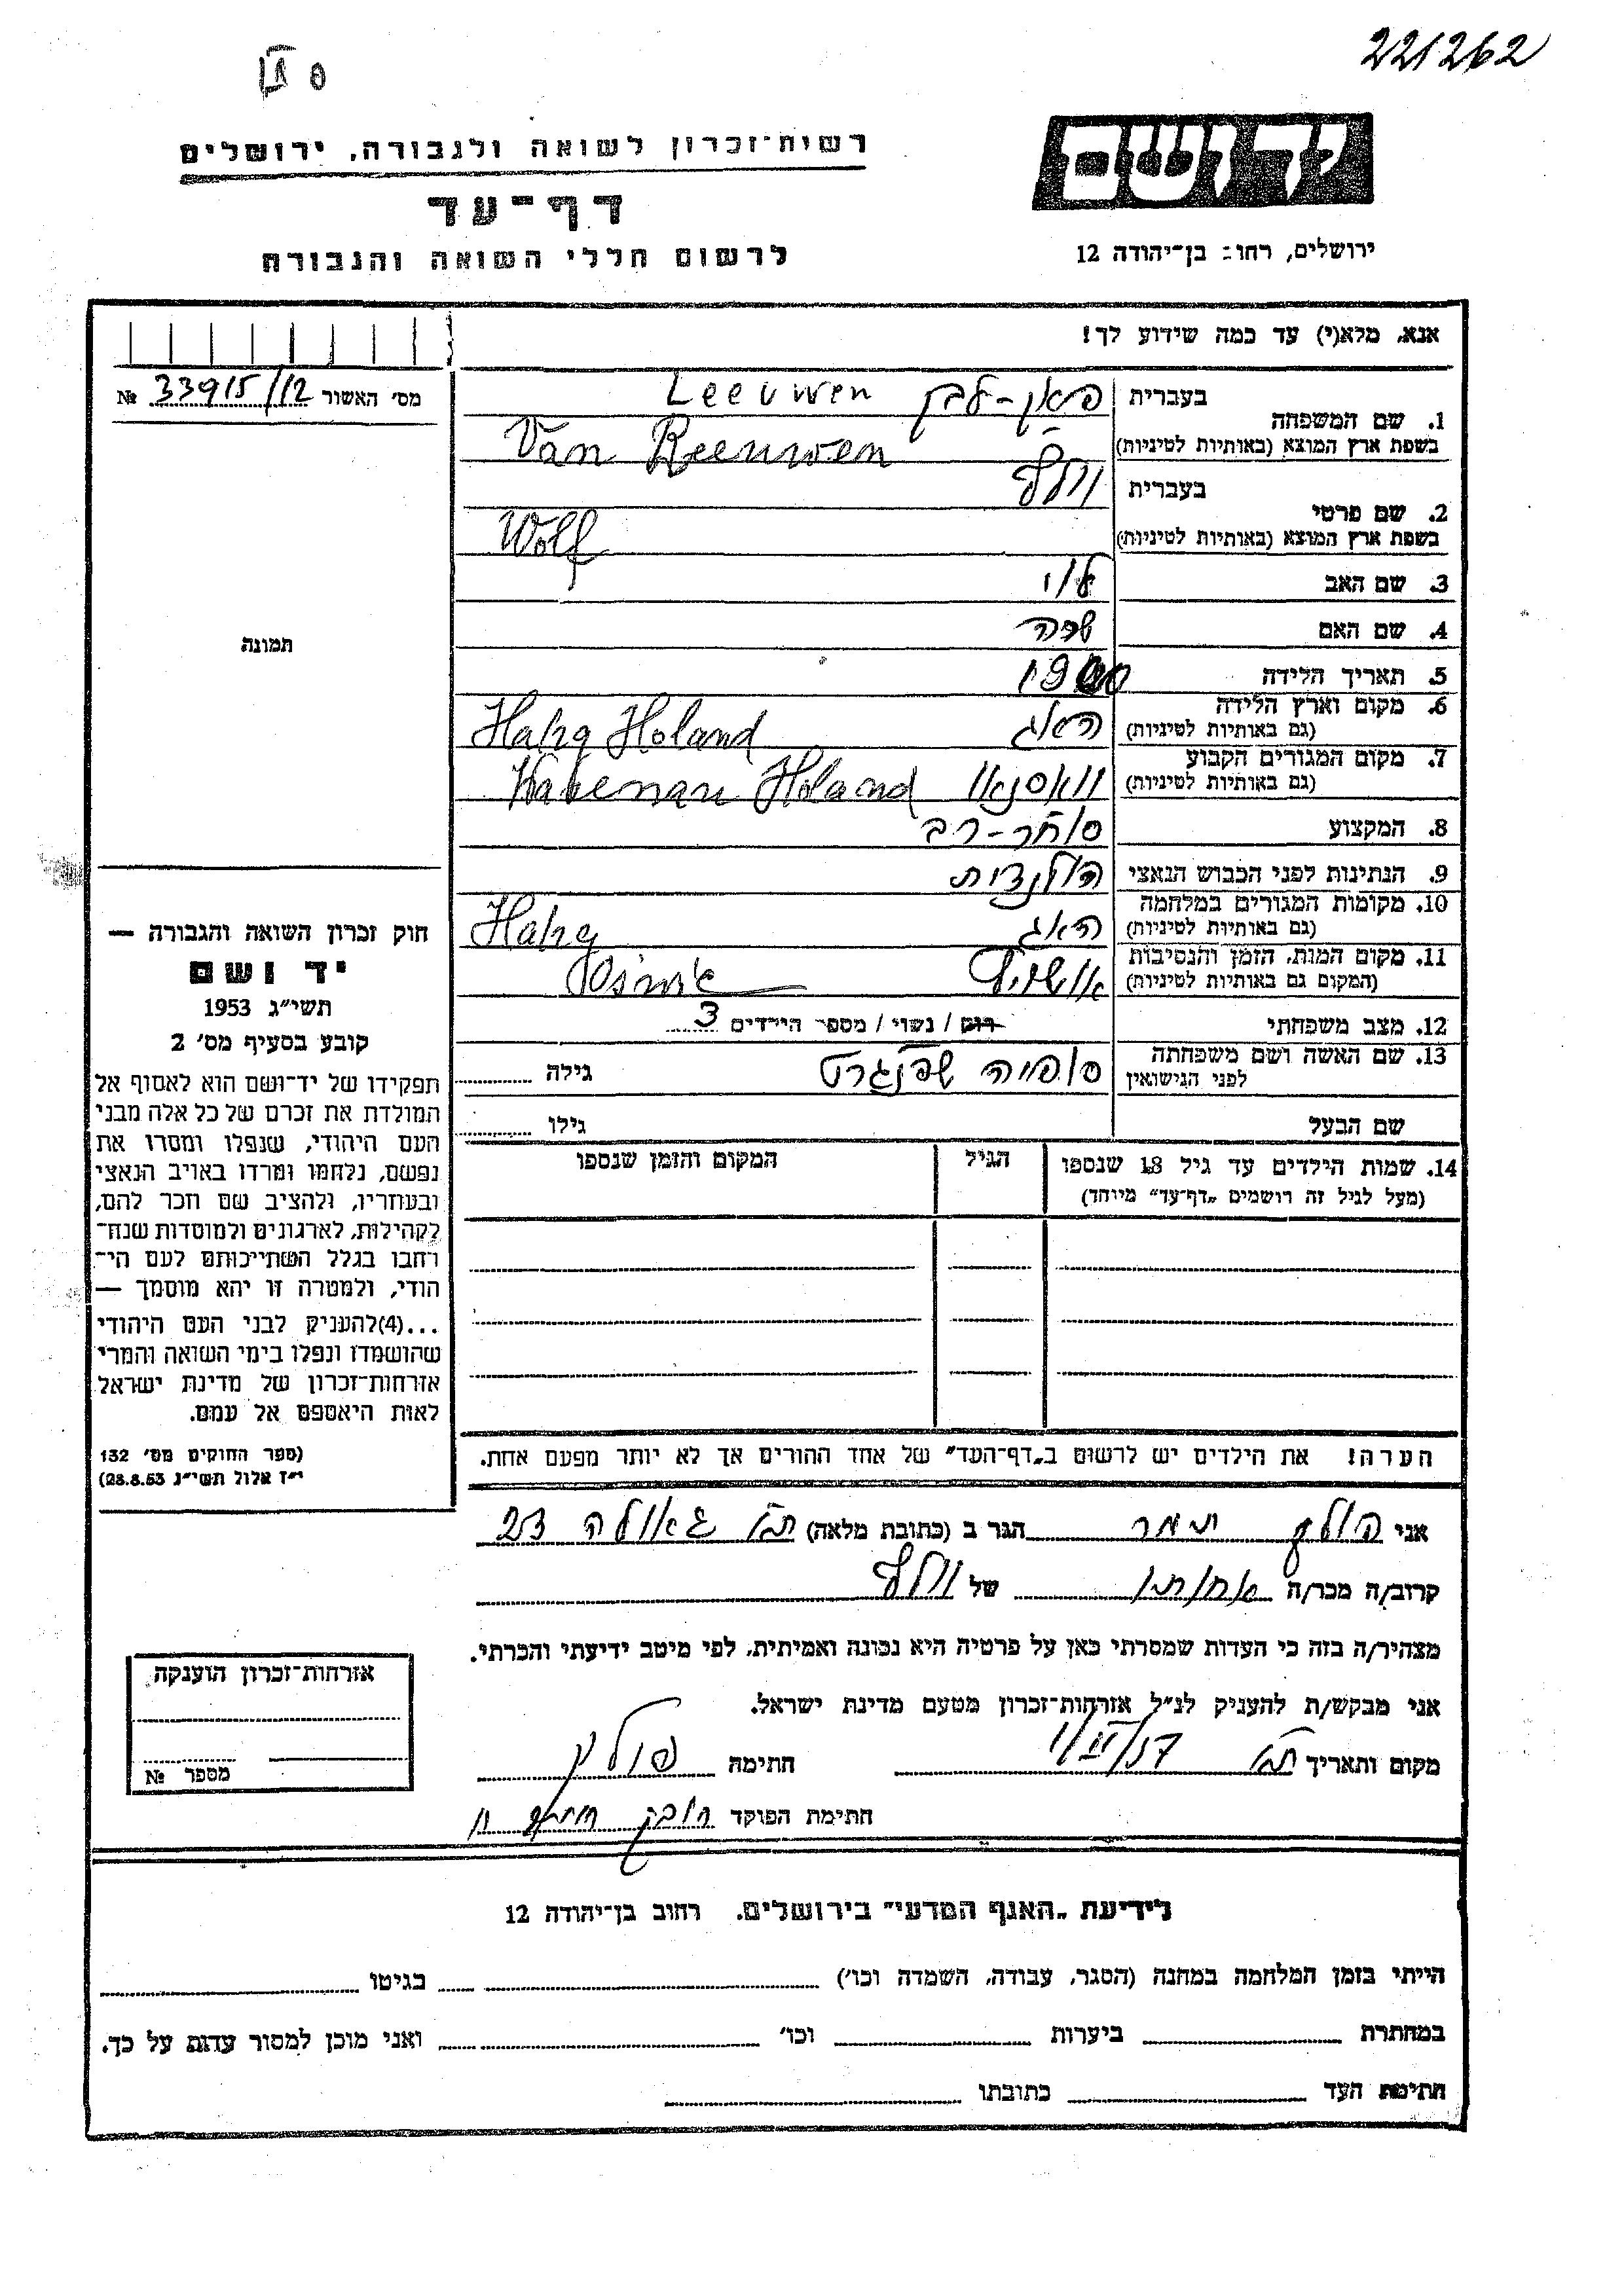 221262
רשות־זכרון לשואה ולגבורה, ירושלים
ידושם
דף־עד
ירושלים, רחוב בן־יהודה 12
לרשום חללי השואה והגבורה
אנא, מלא(י) עד כמה שידוע לך!
מס׳ האשור 33915/12 №
1. שם המשפחה
בעברית
Leeuwen
בשפת ארץ המוצא (באותיות לטיניות) Van Leeuwen
2. שם פרטי
בעברית וולף
בשפת ארץ המוצא (באותיות לטיניות) Wolf
3. שם האב לוי
4. שם האם שפרה
תמונה
5. תאריך הלידה 1900
6. מקום וארץ הלידה
(גם באותיות לטיניות) האג Hahg Holand
7. מקום המגורים הקבוע
(גם באותיות לטיניות) Holand
8. המקצוע סוחר-רב
9. הנתינות לפני הכבוש הנאצי הולנדית
10. מקומות המגורים במלחמה
(גם באותיות לטיניות) האג Hahg
11. מקום המות, הזמן והנסיבות
(המקום גם באותיות לטיניות) אושוויץ
12. מצב משפחתי רווק / נשוי / מספר הילדים 3
13. שם האשה ושם משפחתה
לפני הנישואין סופיה גילה
שם הבעל גילו
14. שמות הילדים עד גיל 18 שנספו
(מעל לגיל זה רושמים „דף־עד״ מיוחד)
הגיל
המקום והזמן שנספו
הערה! את הילדים יש לרשום ב„דף־העד״ של אחד ההורים אך לא יותר מפעם אחת.
חוק זכרון השואה והגבורה —
יד ושם
תשי״ג 1953
קובע בסעיף מס׳ 2
תפקידו של יד־ושם הוא לאסוף אל
המולדת את זכרם של כל אלה מבני
העם היהודי, שנפלו ומסרו את
נפשם, נלחמו ומרדו באויב הנאצי
ובעוזריו, ולהציב שם וזכר להם,
לקהילות, לארגונים ולמוסדות שנח־
רבו בגלל השתייכותם לעם הי־
הודי, ולמטרה זו יהא מוסמך —
...(4)להעניק לבני העם היהודי
שהושמדו ונפלו בימי השואה והמרי
אזרחות־זכרון של מדינת ישראל
לאות היאספם אל עמם.
(ספר החוקים מס׳ 132
י״ז אלול תשי״ג 28.8.53)
אני פולק תמר הגר ב (כתובת מלאה) ת״א גאולה 23
קרוב/ה מכר/ה אחותו של וולף
מצהיר/ה בזה כי העדות שמסרתי כאן על פרטיה היא נכונה ואמיתית, לפי מיטב ידיעתי והכרתי.
אני מבקש/ת להעניק לנ״ל אזרחות־זכרון מטעם מדינת ישראל.
מקום ותאריך ת״א חתימה פולק
חתימת הפוקד
אזרחות־זכרון הוענקה
מספר №
לידיעת „האגף המדעי״ בירושלים, רחוב בן־יהודה 12
הייתי בזמן המלחמה במחנה (הסגר, עבודה, השמדה וכו׳) בגיטו
במחתרת ביערות וכו׳ ואני מוכן למסור עדות על כך.
חתימת העד כתובתו